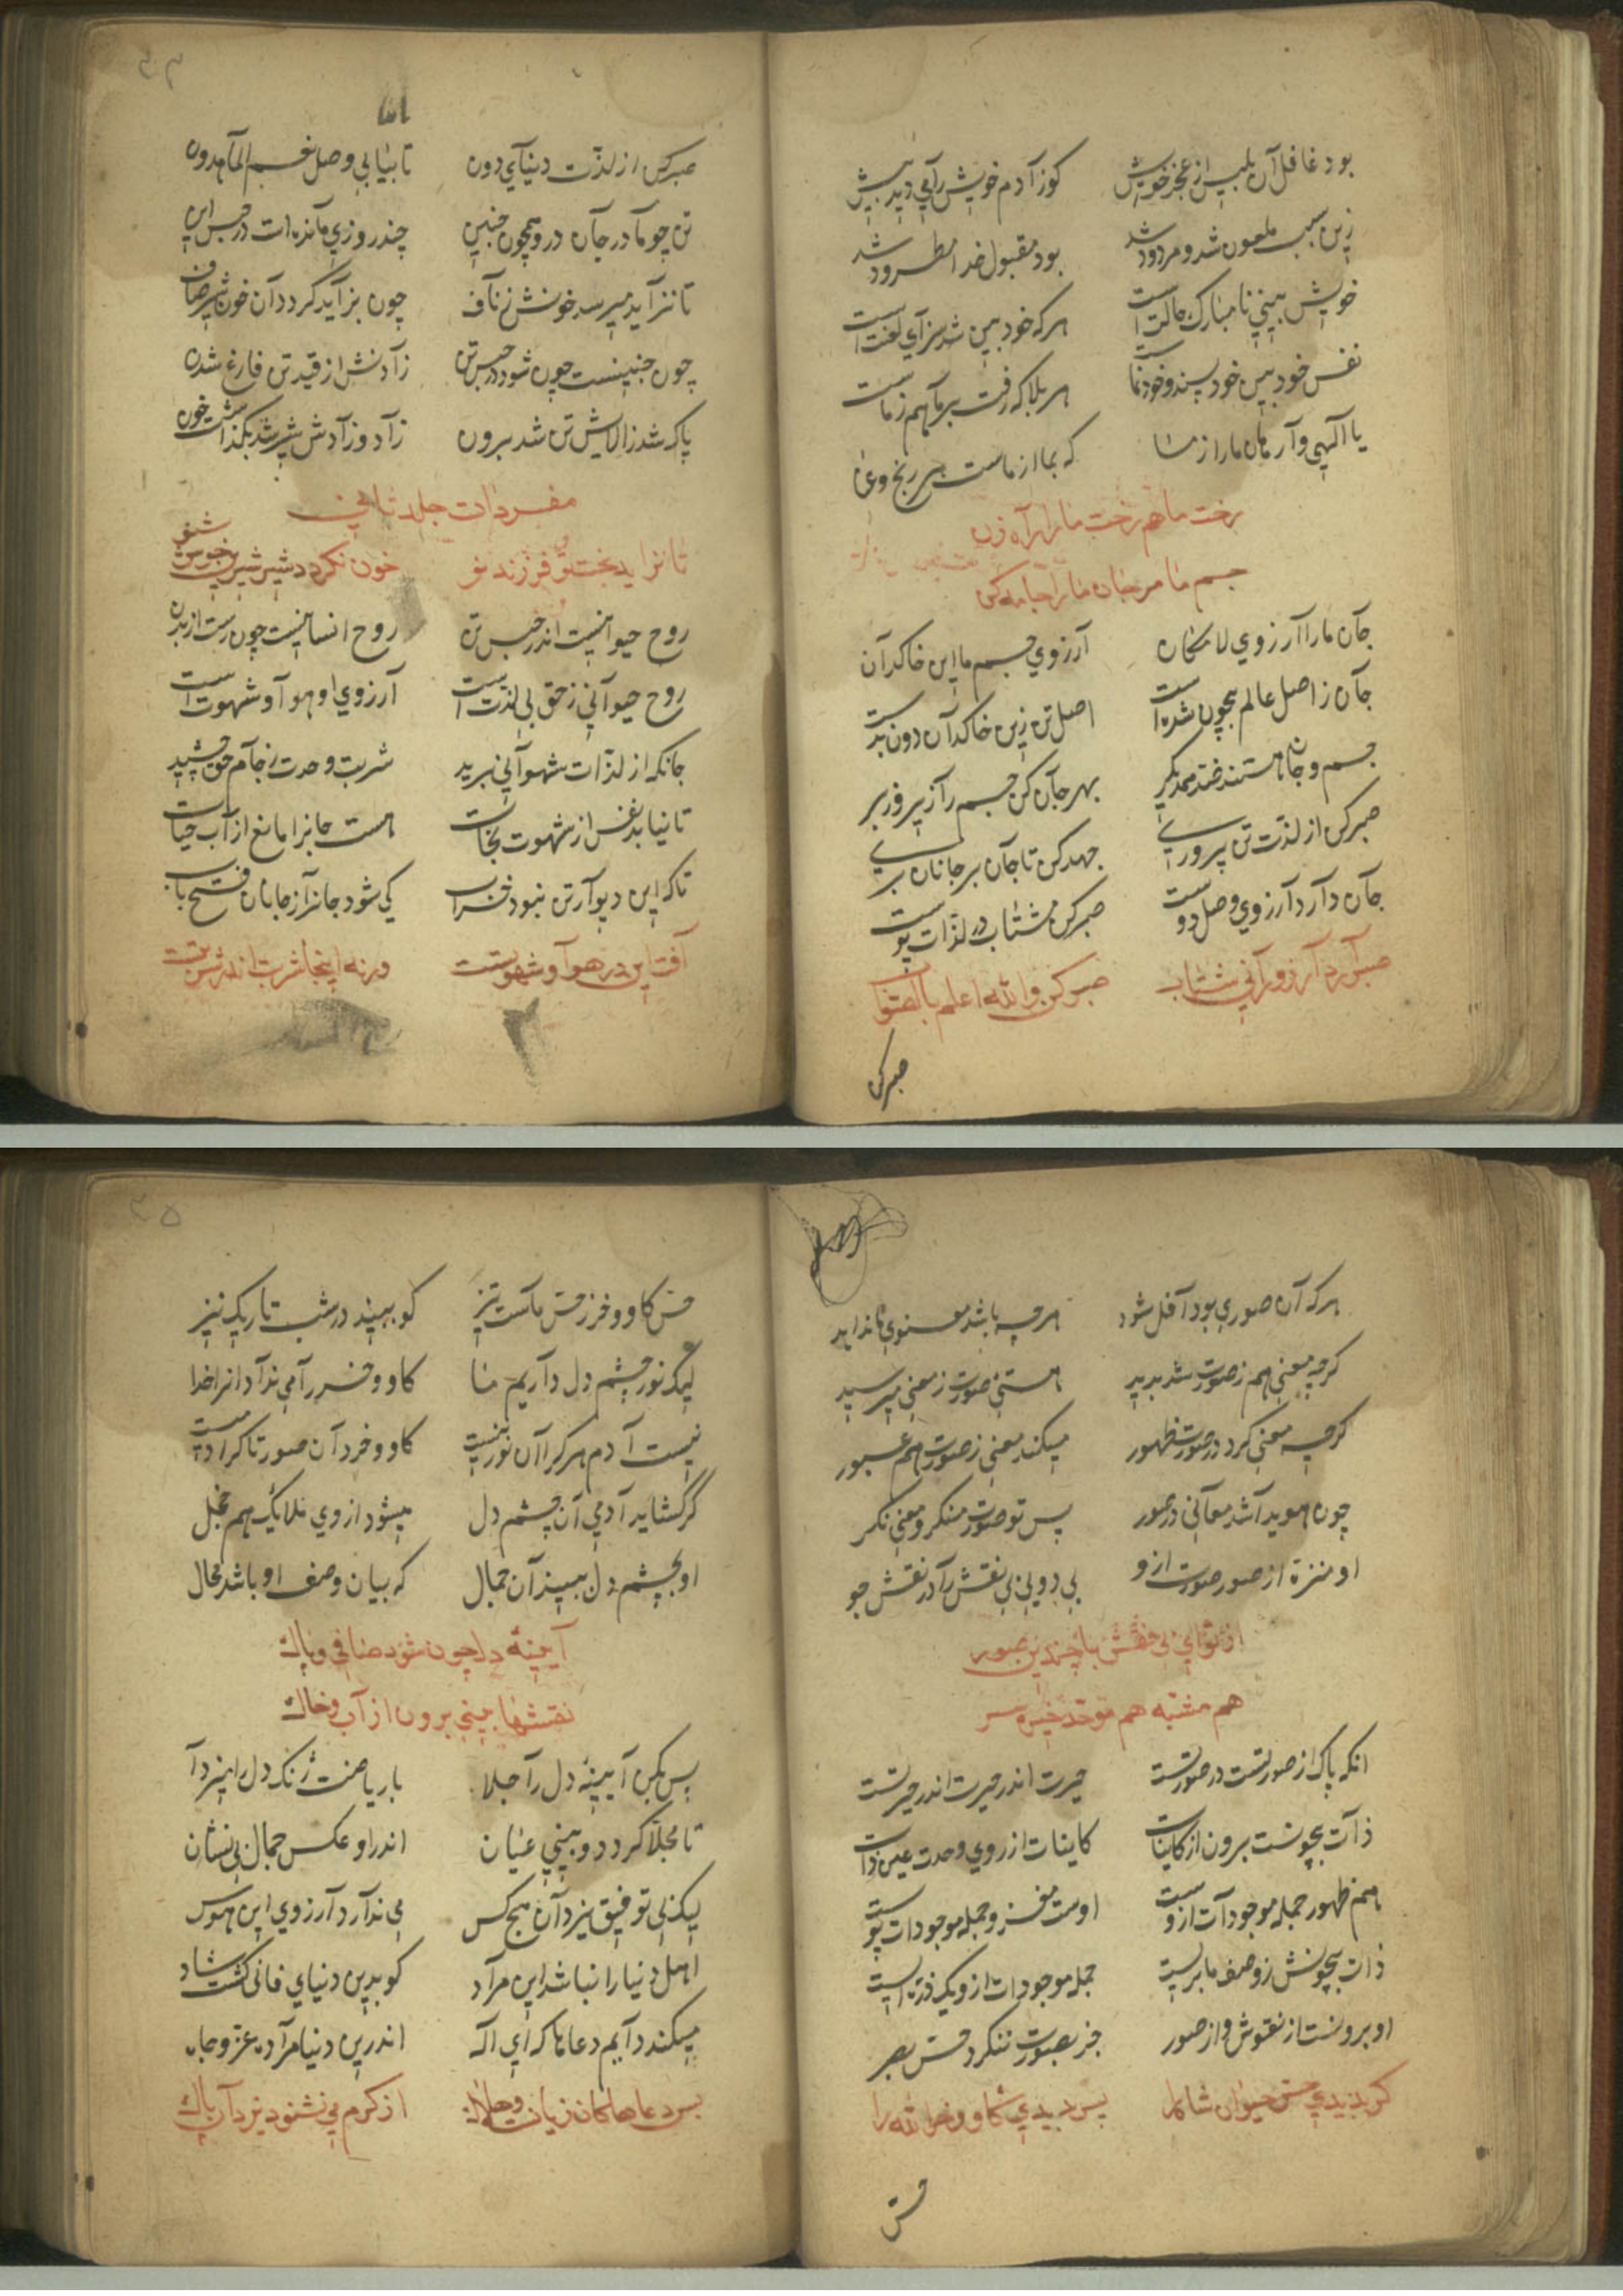 بود غافل آن بلیس از عجز خویش کوز آدم خویش را می دید بیش
زین سبب ملعون شد و مردود شد بود مقبول خدا مطرود شد
خویش بینی نا مبارک حالت است هر که خود بین شد سزای لعنت است
نفس خود بین خود پسند و خود نماست هر بلا که رفت بر ما هم ز ماست
یا الهی وا رهان ما را ز ما که بما از ماست هر رنج و عنا
رخت ما هم رخت ما را راه زن
جسم ما مر جان ما را جامه کن
جان ما را آرزوی لامکان آرزوی جسم ما این خاکدان
جان ز اصل عالم بیچون شده است اصل تن زین خاکدان دون بدست
جسم و جان هستند ضد همدگر بهر جان کن جسم را زیر و زبر
صبر کن از لذت تن پروری جهد کن تا جان بر جانان بری
جان دارد آرزوی وصل دوست صبر کن مشتاب در لذات پوست
صبر آرد آرزو را نی شتاب صبر کن والله اعلم بالصواب
صبر کن
صبر کن از لذت دنیای دون تا بیابی وصل نعم الماهدون
تن چو مادر جان درو همچون جنین چند روزی مانده است در حبس این
تا نزاید میرسد خونش ز ناف چون بزاید گردد آن خون شیر صاف
چون جنینست چون شود در حبس تن زادنش از قید تن فارغ شدن
پاک شد ز الایش تن شد برون زاد و زادش شیر شد بگذاشت خون
مفردات جلد ثانی
تا نزاید بخت تو فرزند نو خون نگردد شیر شیرین خوش شنو
روح حیوانیست اندر حبس تن روح انسانیست چون رست از بدن
روح حیوانی ز حق بی لذت است آرزوی او هوا و شهوت است
جانکه از لذات شهوانی برید شربت وحدت ز جام حق چشید
تا نیابد نفس از شهوت نجات هست جانرا مانع از آب حیات
تا که این دیوار تن نبود خراب کی شود جانرا ز جانان فتح باب
آفت این در هوا و شهوتست ورنه اینجا شربت اندر شربتست
هر که آن صوری بود آفل شود هر چه باشد معنوی
گرچه معنی هم ز صورت شد پدید هستی صورت ز معنی میرسید
گرچه معنی کرد در صورت ظهور میکند معنی ز صورت هم عبور
چون هویدا شد معانی در صور پس تو صورت منگر و معنی نگر
او منزه از صور صورت ازو بی دویی بی نقش را در نقش جو
از تو ای بی نقش با چندین صور
هم مشبه هم موحد خیره سر
انکه پاک از صورتست در صورتست حیرت اندر حیرت اندر حیرتست
ذات بیچونست برون از کاینات کاینات از روی وحدت عین ذات
هم ظهور جمله موجودات ازوست اوست مغز و جمله موجودات پوست
ذات بیچونش ز وصف ما بریست جمله موجودات ازو یک ذره ایست
او برونست از نقوش و از صور جز بصورت ننگرد حس بصر
گر بدیدی حس حیوان شاه را پس بدیدی گاو و خر الله را
حس
حس گاو و خر ز حس ماست تیز کو ببیند در شب تاریک نیز
لیک نور چشم دل داریم ما گاو و خر را می نداد آنرا خدا
نیست آدم هر کرا آن نور نیست گاو و خر دان صورتا گر آدمیست
گر گشاید آدمی آن چشم دل میشود از وی ملایک هم خجل
او بچشم دل ببیند آن جمال که بیان وصف او باشد محال
آیینه دل چون شود صافی و پاک
نقشها بینی برون از آب و خاک
پس بکن آیینه دل را جلا با ریاضت ژنک دل را میزدا
تا مجلا گردد و بینی عیان اندر او عکس جمال بی نشان
لیک بی توفیق یزدان هیچ کس می ندارد آرزوی این هوس
اهل دنیا را نباشد این مراد کو بدین دنیای فانی گشت شاد
میکند دایم دعاها کای اله اندرین دنیا مراده عز و جاه
بس دعاها کان زیانست و هلاک از کرم می نشنود یزدان پاک